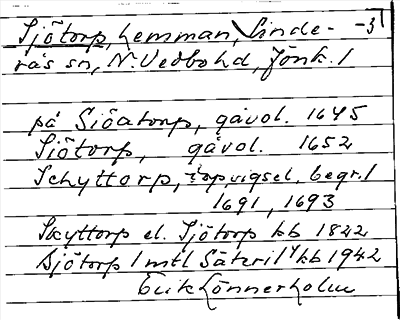 Sjötorp, hemman, Linde- -37
rås sn, N. Vedbo hd, Jönk. l
på Siöatorp, gåvol. 1645
Siötorp, gåvol. 1652
Schyttorp, dop, vigsel, begr. l
1691, 1693
Skyttorp el. Sjötorp kb 1822
Sjötorp / mtl Säteri kb 1942
Erik Lönnerholm